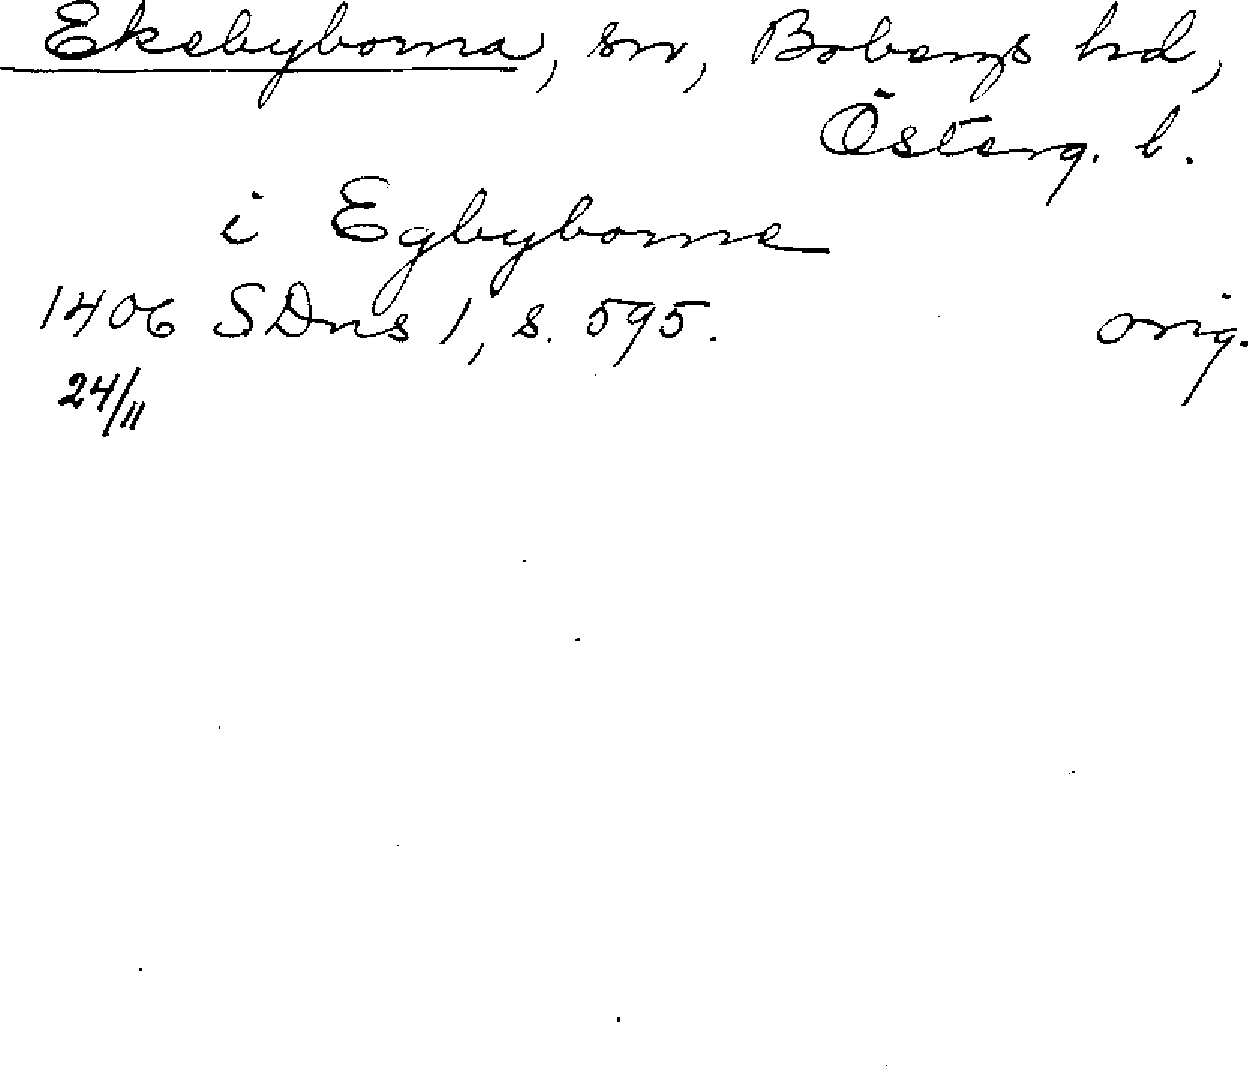 Ekebyborna, sn, Bobergs hd,
Österg. l.
i Egbyborne
1406 SDns 1, s. 595. orig.
24/11